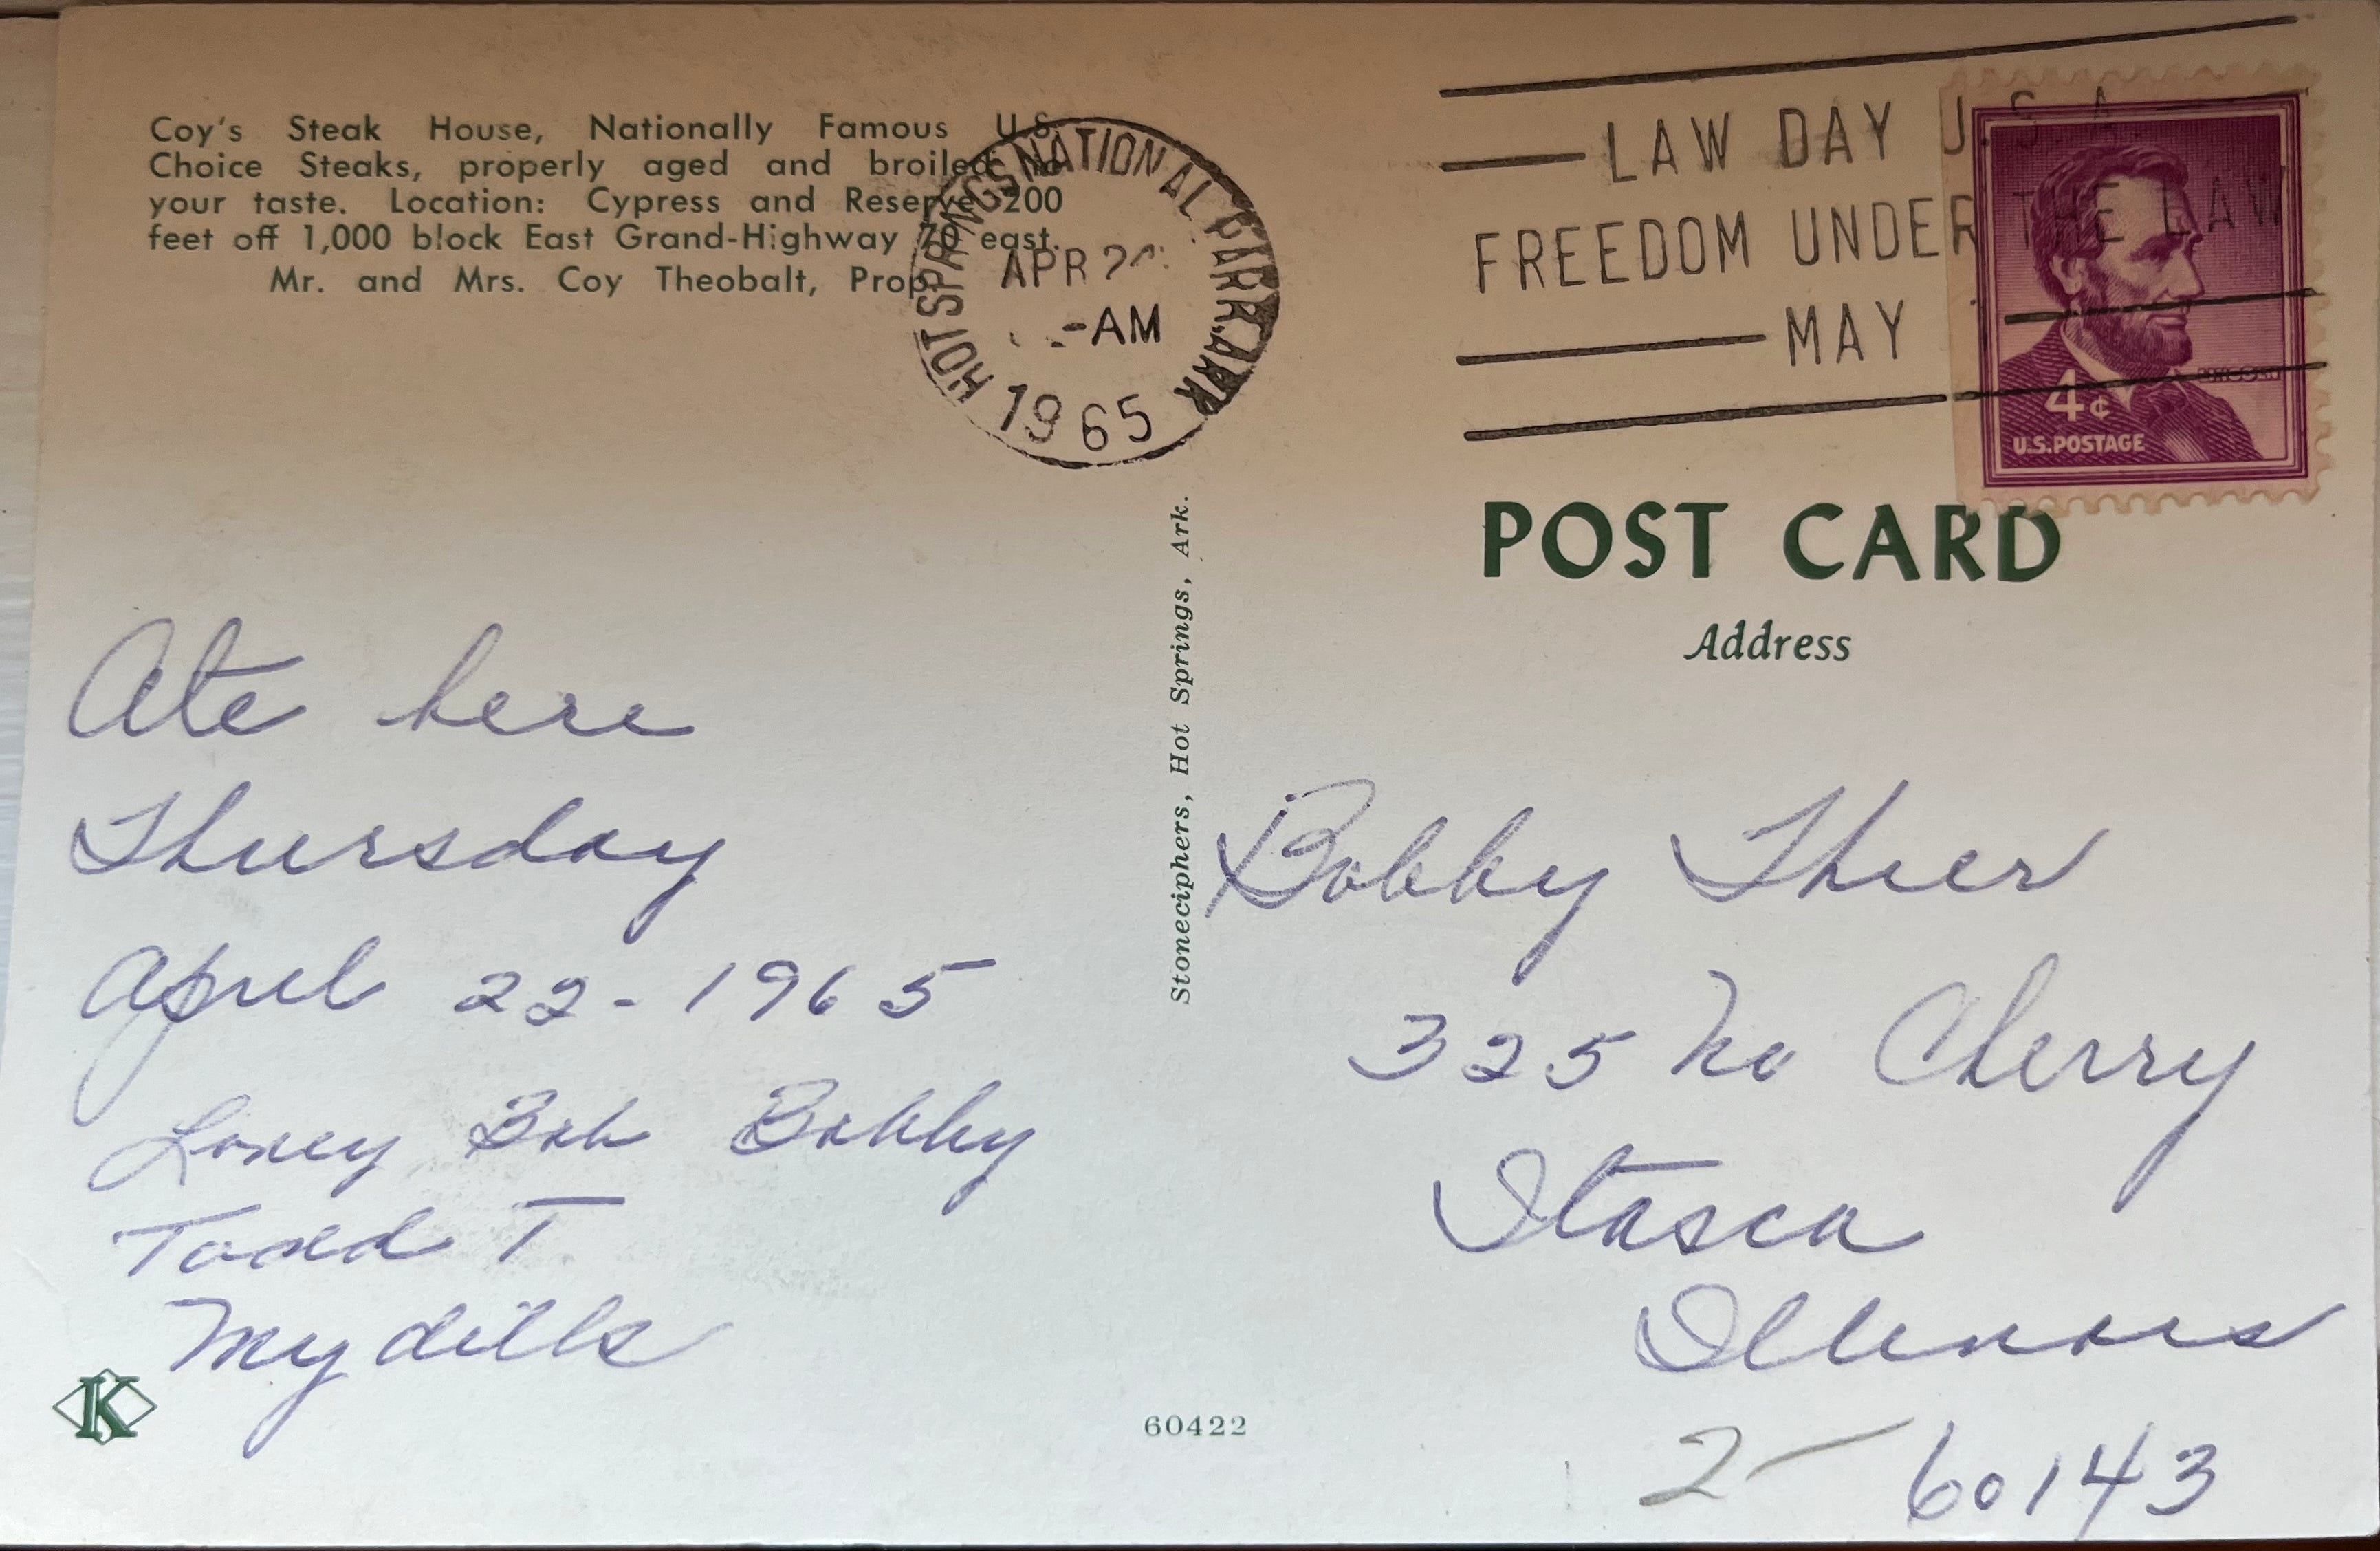 Coy's Steak House, Nationally Famous U.S.
Choice Steaks, properly aged and broiled to
your taste. Location: Cypress and Reserve 200
feet off 1,000 block East Grand-Highway 70 east.
Mr. and Mrs. Coy Theobalt, Prop.
HOT SPRINGS NATIONAL PARK, ARK
APR
-AM
1965
LAW DAY U.S.A.
FREEDOM UNDER THE LAW
MAY
LINCOLN
4¢
U.S. POSTAGE
POST CARD
Address
Ate here
Thursday
April 22-1965
Bob Bobby
Todd T
My dills
Stoneciphers, Hot Springs, Ark.
Bobby Thier
325 No Cherry
Itasca
Illinois
2- 60143
K
60422